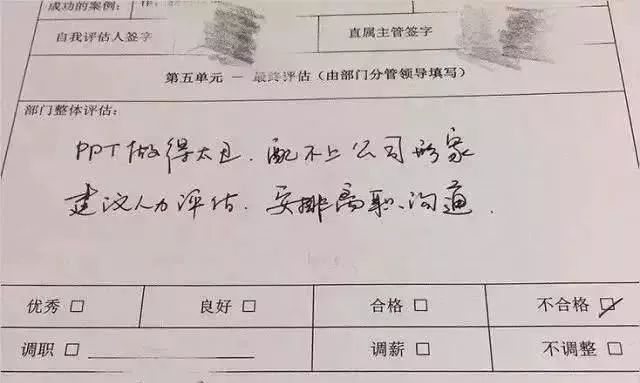 成功的案例：
自我评估人签字
直属主管签字
第五单元 — 最终评估（由部门分管领导填写）
部门整体评估：
PPT做得太丑.配不上公司形象
建议人力评估.安排离职沟通.
优秀 □ 良好 □ 合格 □ 不合格 ☑
调职 □ 调薪 □ 不调整 □